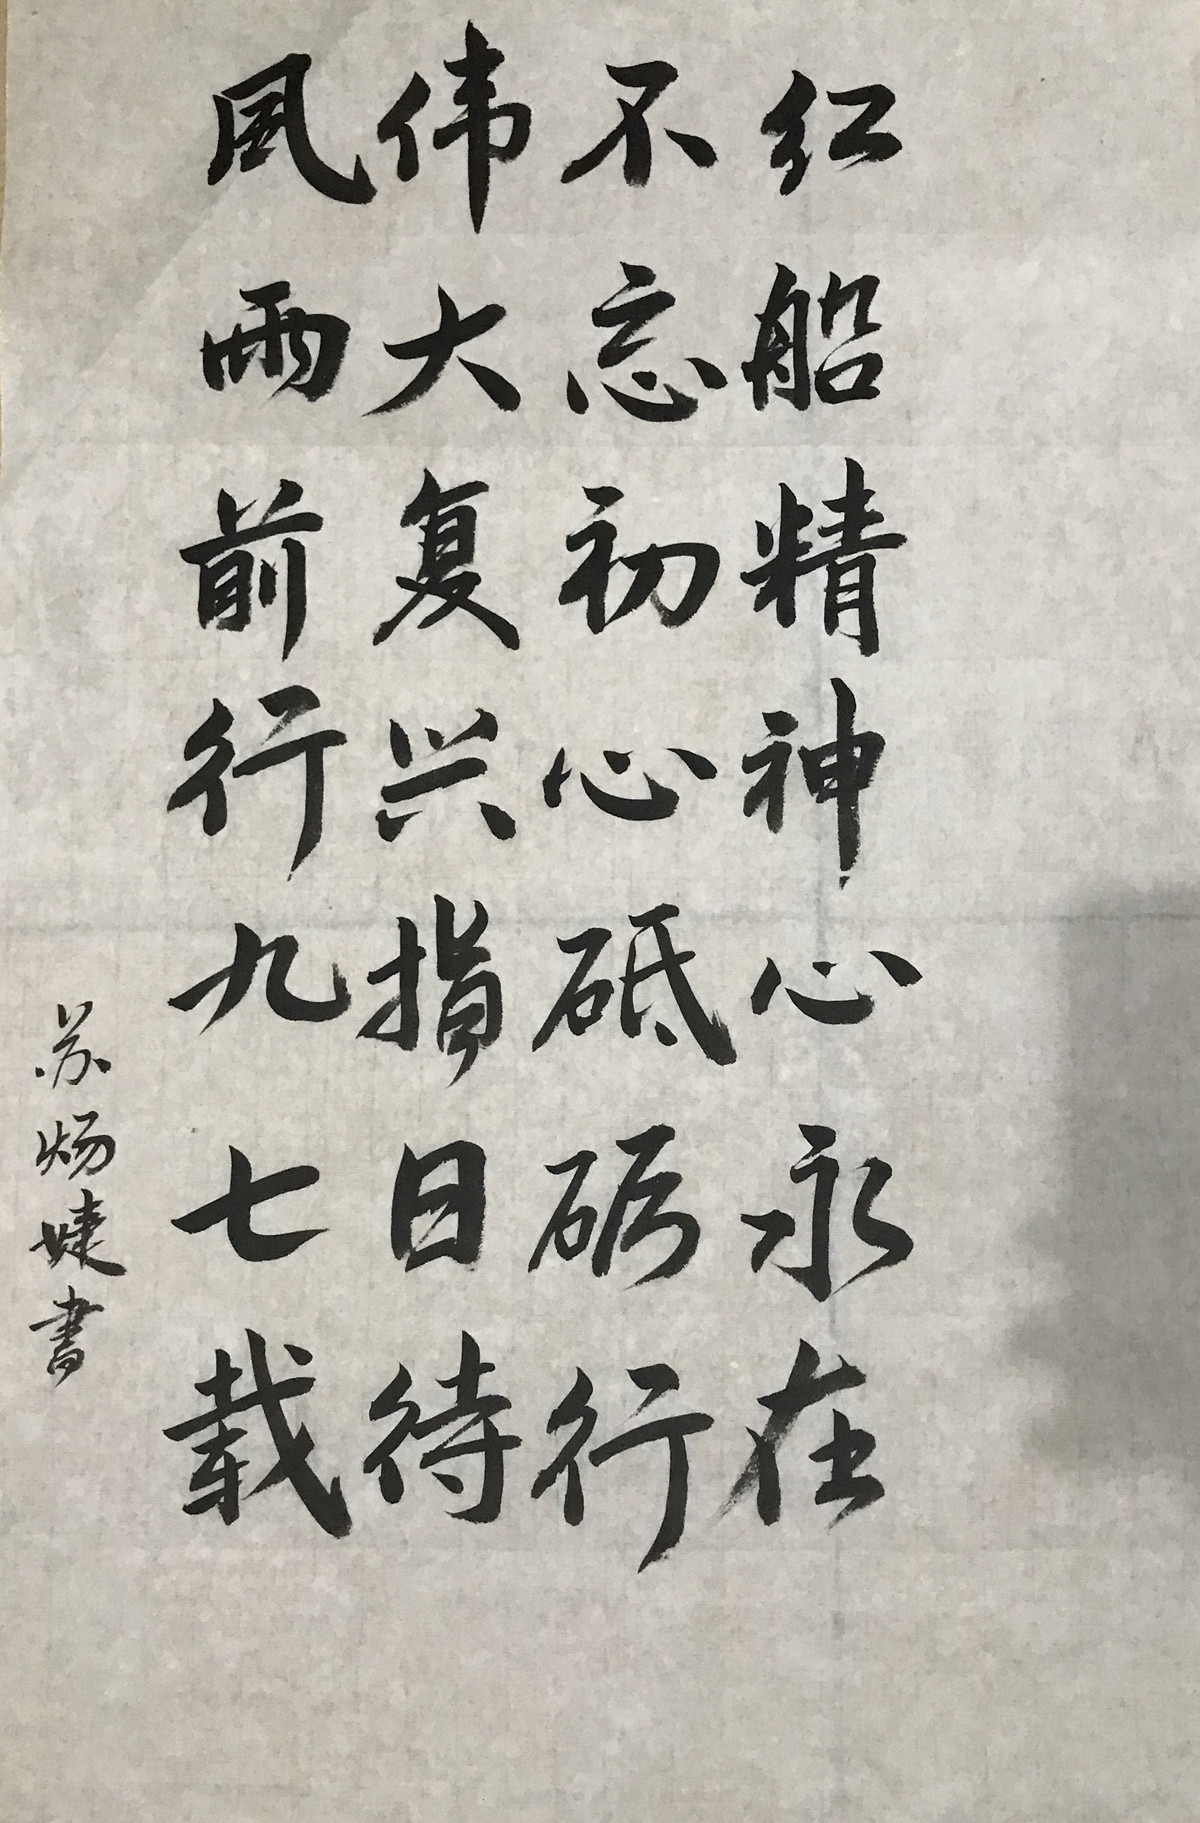 红船精神心永在
不忘初心砥砺行
伟大复兴指日待
风雨前行九七载
苏炀婕書